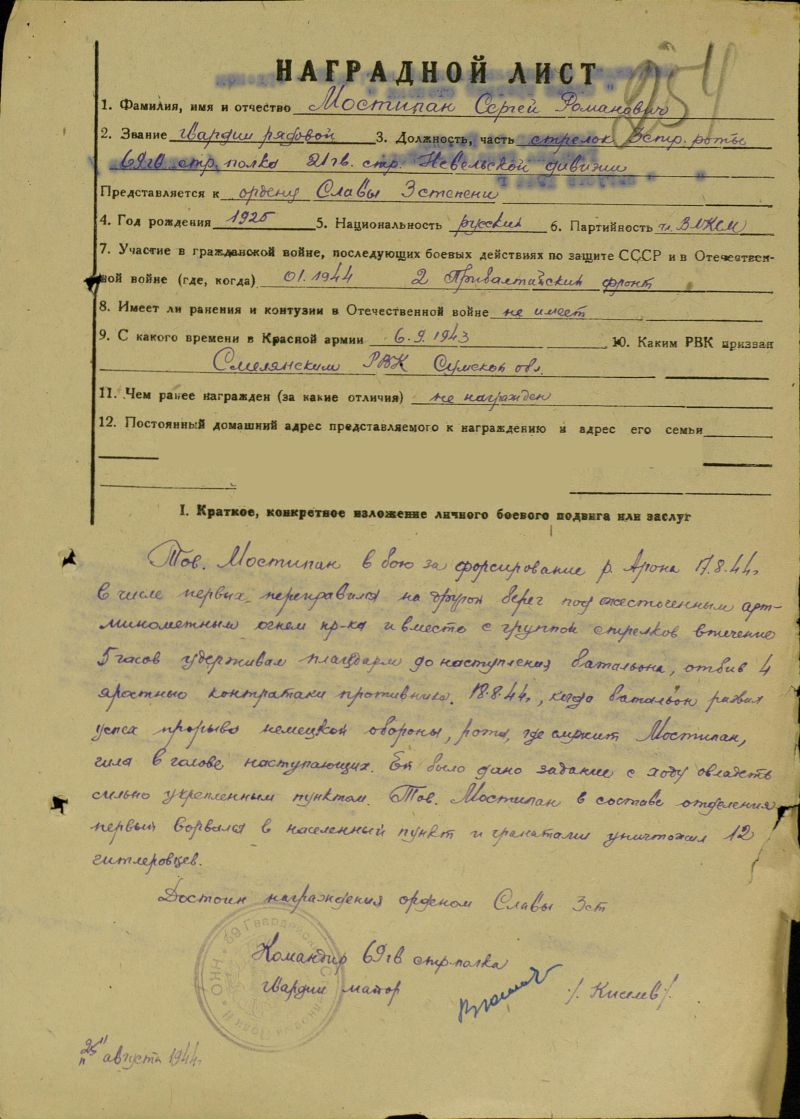 НАГРАДНОЙ ЛИСТ
254
1. Фамилия, имя и отчество Мостипан Сергей Романович
2. Звание гвардии рядовой 3. Должность, часть стрелок 3 стр. роты
69 гв. стр. полка 21 гв. стр. Невельской дивизии
Представляется к ордену Славы 3 степени
4. Год рождения 1925 5. Национальность русский 6. Партийность чл. ВЛКСМ
7. Участие в гражданской войне, последующих боевых действиях по защите СССР и в Отечествен-
ной войне (где, когда) 01.1944 2 Прибалтийский фронт
8. Имеет ли ранения и контузии в Отечественной войне не имеет
9. С какого времени в Красной армии 6.9.1943 10. Каким РВК призван
Смелянским РВК Сумской обл.
11. Чем ранее награжден (за какие отличия) не награжден
12. Постоянный домашний адрес представляемого к награждению и адрес его семьи
I. Краткое, конкретное изложение личного боевого подвига или заслуг
Тов. Мостипан в бою за форсирование р. Арона 17.8.44г.
в числе первых переправился на другой берег под ожесточенным арт-
минометным огнем пр-ка и вместе с группой стрелков в течение
5 часов удерживал плацдарм до наступления батальона, отбив 4
яростные контратаки противника. 18.8.44г., когда батальон развил
успех прорыва немецкой обороны, рота, где служит Мостипан,
шла в голове наступающих. Ей было дано задание с ходу овладеть
сильно укрепленным пунктом. Тов. Мостипан в составе отделения
первый ворвался в населенный пункт и гранатами уничтожил 12
гитлеровцев.
Достоин награждения орденом Славы 3 ст
Командир 69 гв стр. полка
гвардии майор /Киселев/
"25" августа 1944г.